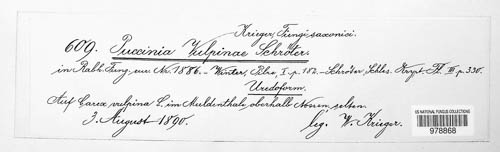 Krieger, Fungi saxonici.
609. Puccinia Vulpinae Schröter.
in Rabh. Fung. eur. Nr. 1886. - Winter, Pilze, I. p. 182. - Schröter, Schles. Krypt. Fl. III p. 330.
Uredoform.
Auf Carex vulpina L. im Muldenthale oberhalb Nossen, selten.
3. August 1890. leg. W. Krieger.
US NATIONAL FUNGUS COLLECTIONS
978868